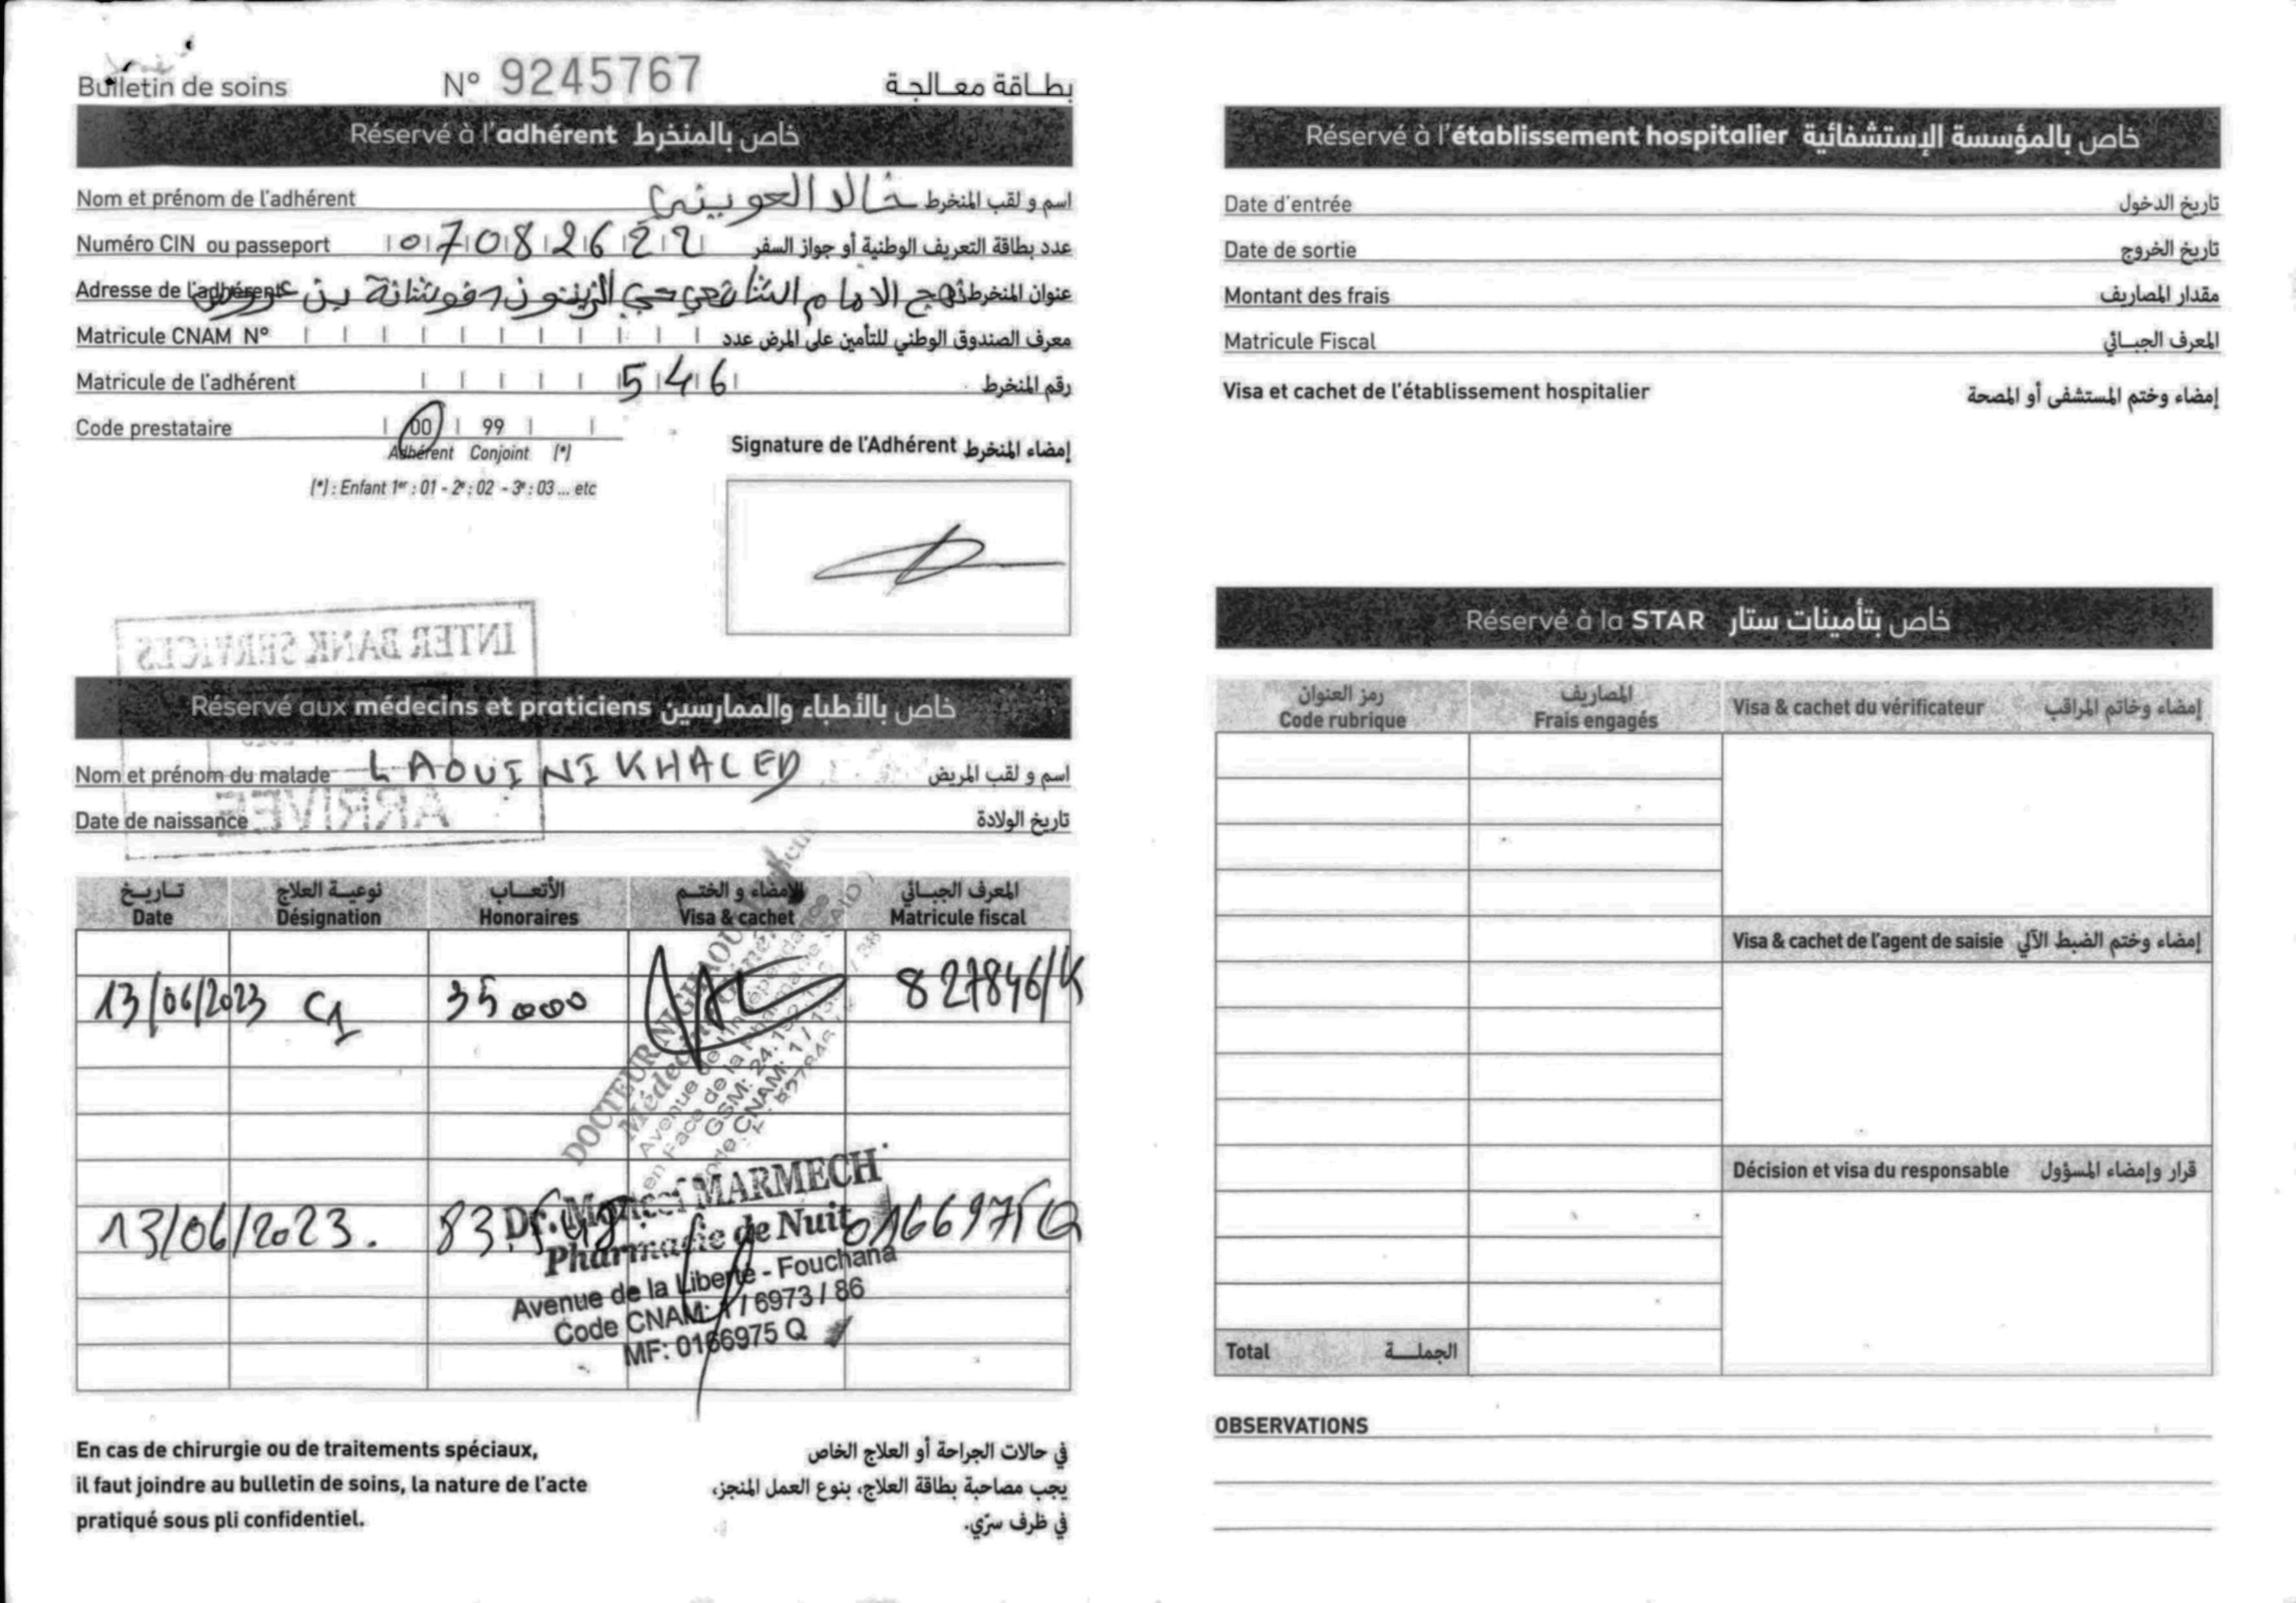 Bulletin de soins N° 9245767 بطاقة معالجة
Réservé à l'adhérent خاص بالمنخرط
Nom et prénom de l'adhérent خالد العويني اسم و لقب المنخرط
Numéro CIN ou passeport 07082622 عدد بطاقة التعريف الوطنية أو جواز السفر
Adresse de l'adhérent عنوان المنخرط نهج الامام الشافعي حي الزيتون فوشانة بن عروس
Matricule CNAM N° معرف الصندوق الوطني للتأمين على المرض عدد
Matricule de l'adhérent 546 رقم المنخرط
Code prestataire 00 99
Adhérent Conjoint (*)
(*) : Enfant 1er : 01 - 2e : 02 - 3e : 03 ... etc
Signature de l'Adhérent إمضاء المنخرط
INTER BANK SERVICES
ARRIVEE
Réservé aux médecins et praticiens خاص بالأطباء والممارسين
Nom et prénom du malade LAOUINI KHALED اسم و لقب المريض
Date de naissance تاريخ الولادة
تاريخ نوعية العلاج الأتعاب الإمضاء و الختم المعرف الجبائي
Date Désignation Honoraires Visa & cachet Matricule fiscal
13/06/2023 C1 35000 827846/K
DOCTEUR
Avenue de l'Indépendance
en Face de la Pharmacie SAID
13/06/2023. 83 0166975Q
Dr. Moncef MARMECH
Pharmacie de Nuit
Avenue de la Liberté - Fouchana
Code CNAM: 1 / 6973 / 86
MF: 0166975 Q
En cas de chirurgie ou de traitements spéciaux,
il faut joindre au bulletin de soins, la nature de l'acte
pratiqué sous pli confidentiel.
في حالات الجراحة أو العلاج الخاص
يجب مصاحبة بطاقة العلاج، بنوع العمل المنجز،
في ظرف سرّي.
Réservé à l'établissement hospitalier خاص بالمؤسسة الإستشفائية
Date d'entrée تاريخ الدخول
Date de sortie تاريخ الخروج
Montant des frais مقدار المصاريف
Matricule Fiscal المعرف الجبائي
Visa et cachet de l'établissement hospitalier إمضاء وختم المستشفى أو المصحة
Réservé à la STAR خاص بتأمينات ستار
رمز العنوان المصاريف
Code rubrique Frais engagés Visa & cachet du vérificateur إمضاء وخاتم المراقب
Visa & cachet de l'agent de saisie إمضاء وختم الضبط الآلي
Décision et visa du responsable قرار وإمضاء المسؤول
Total الجملة
OBSERVATIONS